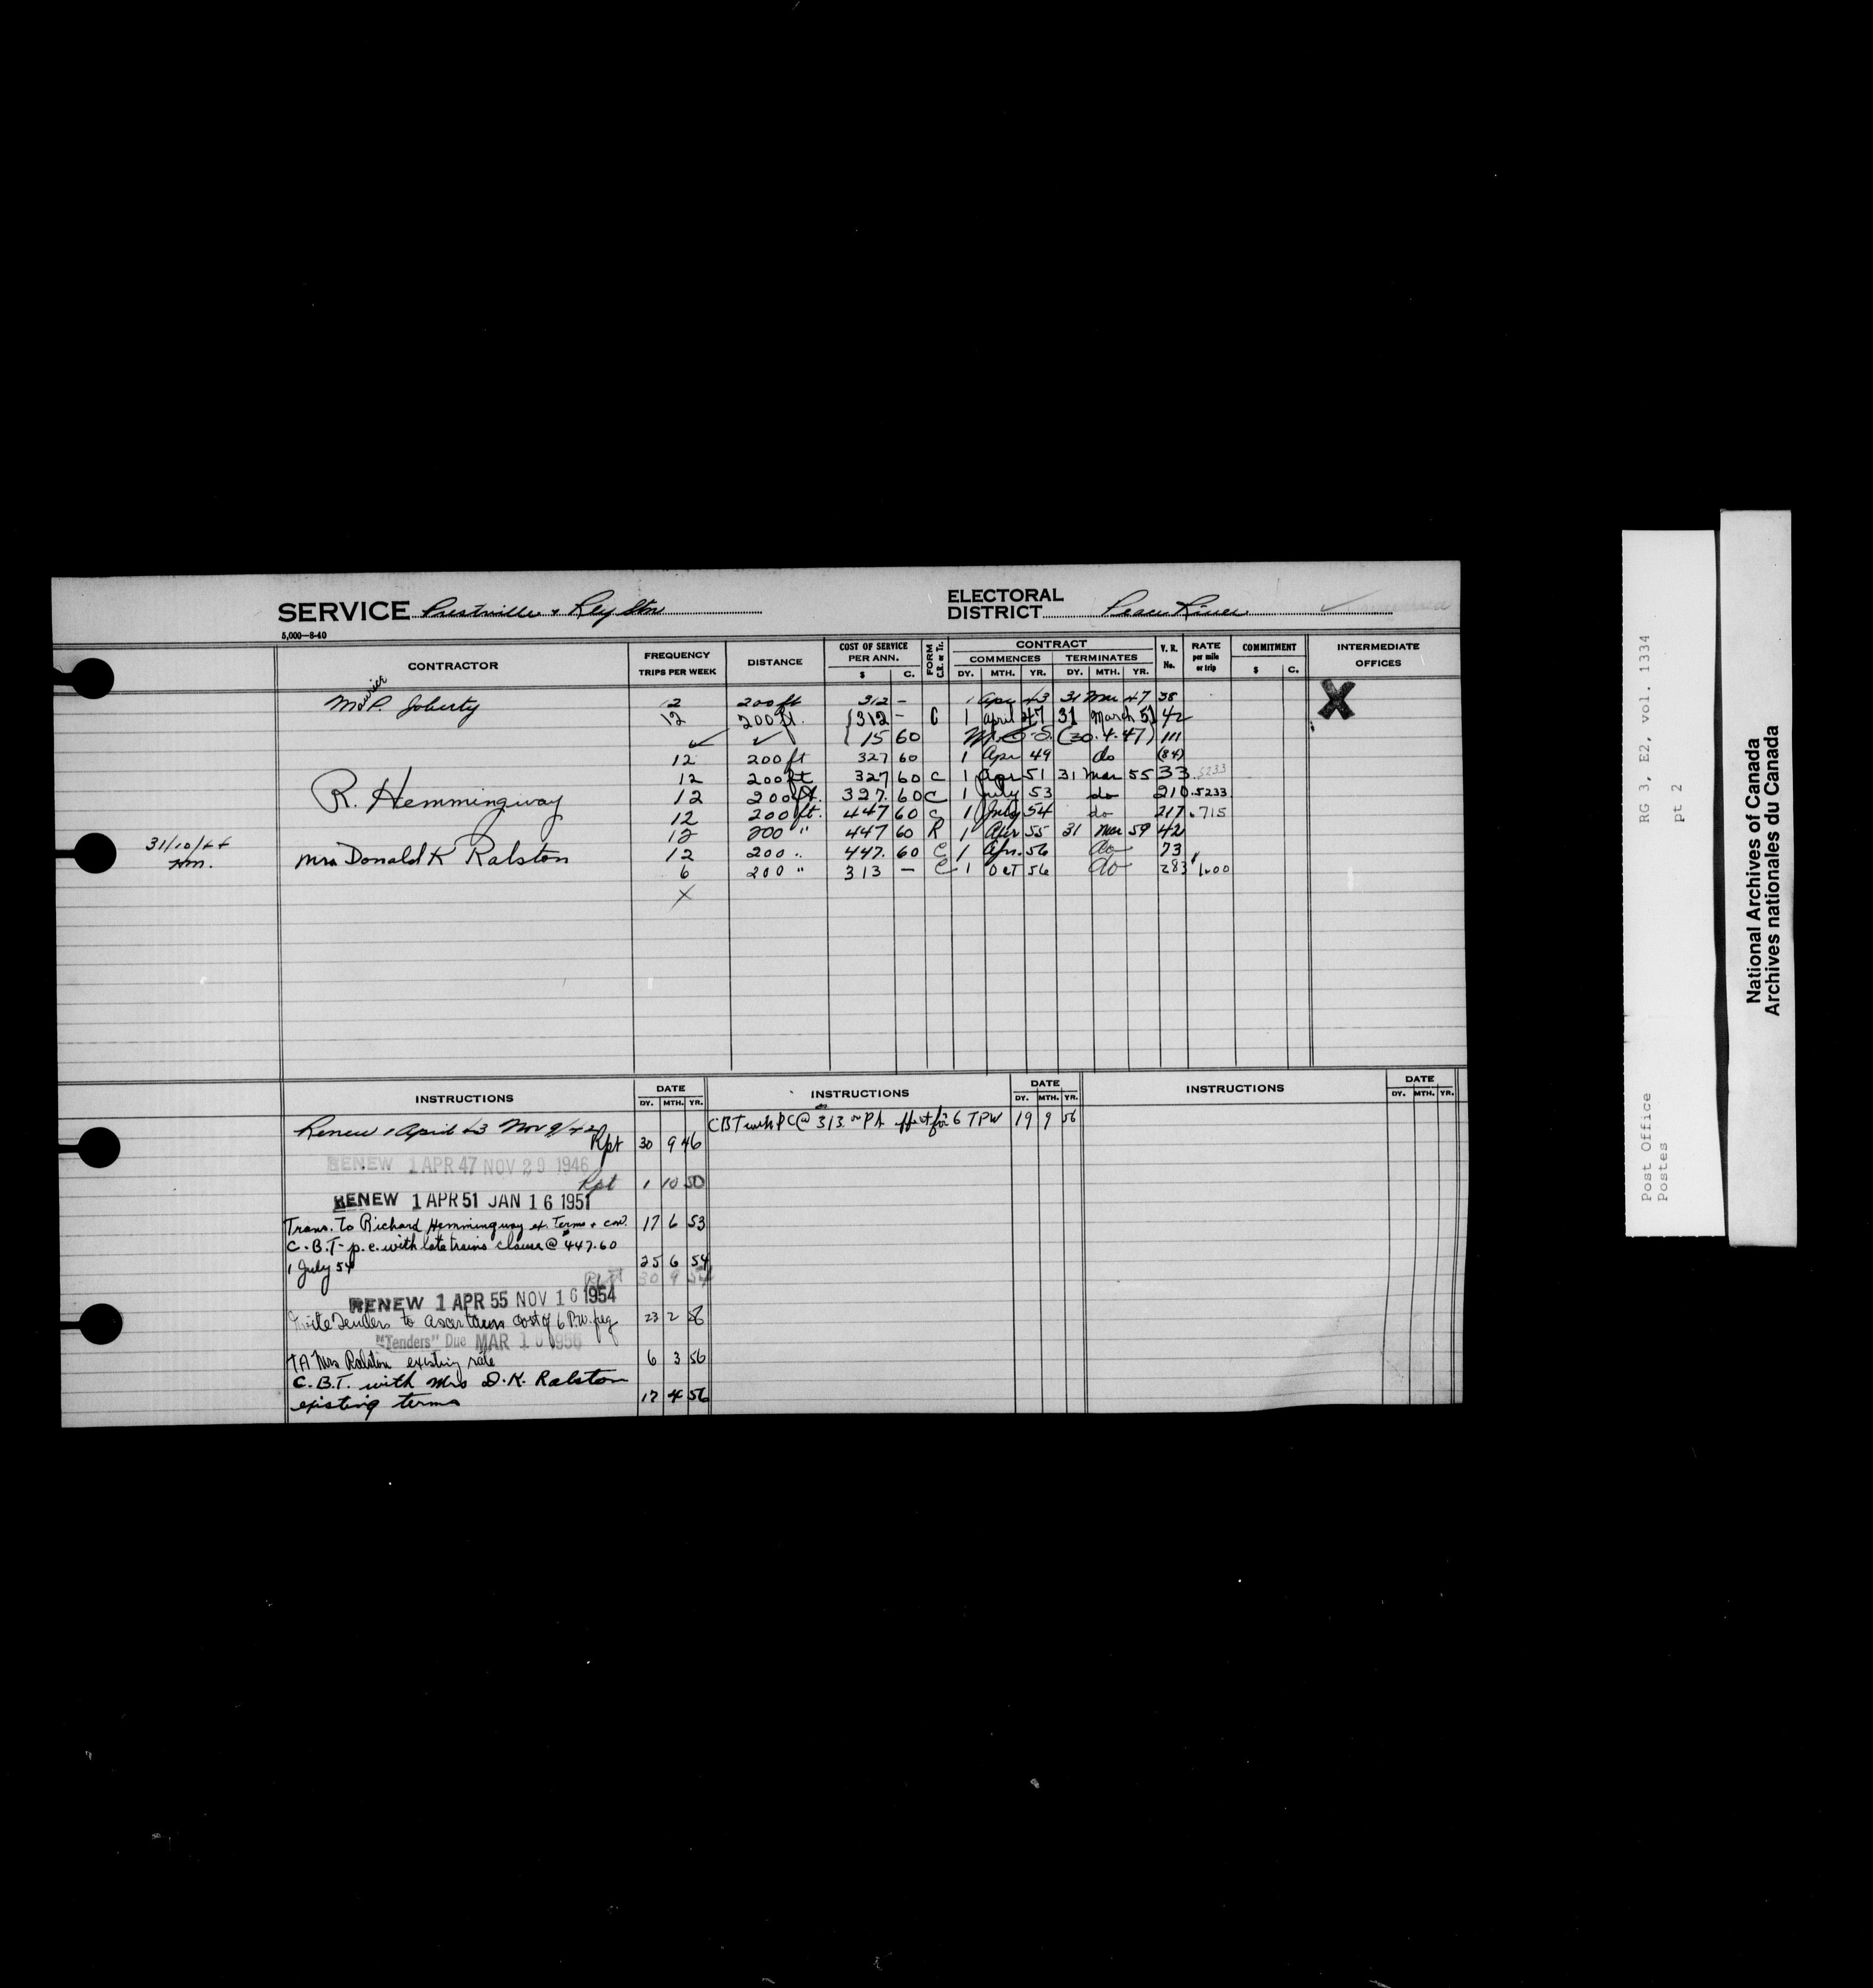 SERVICE Prestville & Rly Stn
ELECTORAL DISTRICT Peace River
5,000—8-40
CONTRACTOR FREQUENCY TRIPS PER WEEK DISTANCE COST OF SERVICE PER ANN. $ C. FORM C.R. or Tr. CONTRACT COMMENCES DY. MTH. YR. TERMINATES DY. MTH. YR. V. R. No. RATE per mile or trip COMMITMENT $ C. INTERMEDIATE OFFICES
P. Joberty 12 200 ft 312 – 1 Apr 43 31 Mar 47 38 X
12 200 ft. {312 – C 1 April 47 31 March 51 42
✓ ✓ {15 60 (30.4.47) 111
12 200 ft 327 60 1 Apr 49 do (84)
12 200 ft 327 60 C 1 Apr 51 31 Mar 55 33 .5233
R. Hemmingway 12 200 ft. 327. 60 C 1 July 53 do 210 .5233
12 200 ft. 447 60 C 1 July 54 do 217 .715
12 200 " 447 60 R 1 Apr 55 31 Mar 59 42
31/10/44
Mrs Donald K Ralston 12 200 " 447. 60 C 1 Apr. 56 do 73
6 200 " 313 — C 1 OCT 56 do 283 1.00
X
INSTRUCTIONS DATE DY. MTH. YR. INSTRUCTIONS DATE DY. MTH. YR. INSTRUCTIONS DATE DY. MTH. YR.
Renew 1 April 43 Nov 9/42
CBT with PC @ 313 PA effect for 6 TPW 19 9 56
Rpt 30 9 46
RENEW 1 APR 47 NOV 29 1946
Rpt 1 10 50
RENEW 1 APR 51 JAN 16 1951
Trans. to Richard Hemmingway ex. terms & con. 17 6 53
C.B.T- p.c. with late trains clause @ $447.60
1 July 54 25 6 54
Rpt 30 9 54
RENEW 1 APR 55 NOV 16 1954
Invite Tenders to ascertain cost of 6 P.W. freq 23 2 56
"Tenders" Due MAR 10 1956
TA Mrs Ralston existing rate 6 3 56
C.B.T. with Mrs D.K. Ralston
existing terms 17 4 56
RG 3, E2, vol. 1334
pt 2
Post Office
Postes
National Archives of Canada
Archives nationales du Canada